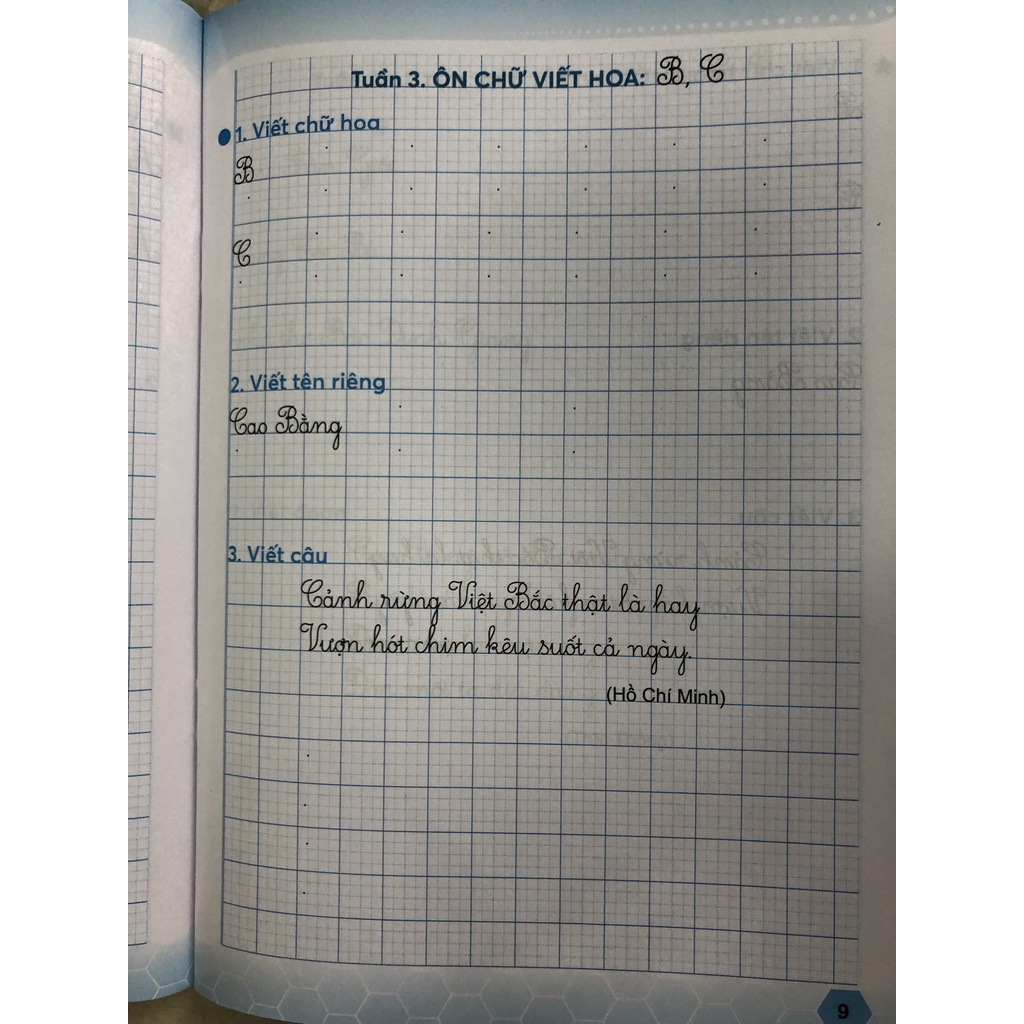 Tuần 3. ÔN CHỮ VIẾT HOA: B, C
1. Viết chữ hoa
B
C
2. Viết tên riêng
Cao Bằng
3. Viết câu
Cảnh rừng Việt Bắc thật là hay
Vượn hót chim kêu suốt cả ngày.
(Hồ Chí Minh)
9